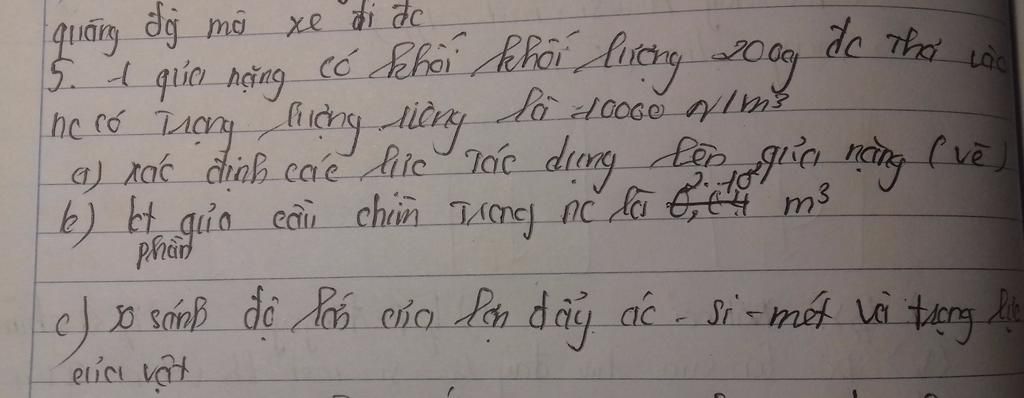 quãng đg mà xe đi đc
5. 1 quả nặng có khối khối lượng 200g đc thả vào
nc có trọng lượng riêng là 10000 N/m³
a) xác định các lực tác dụng lên quả nặng (vẽ)
b) tt quả cầu chìm trong nc là 2.10 m³
phần
c) so sánh độ lớn của lực đẩy ác-si-mét và trọng lực
của vật